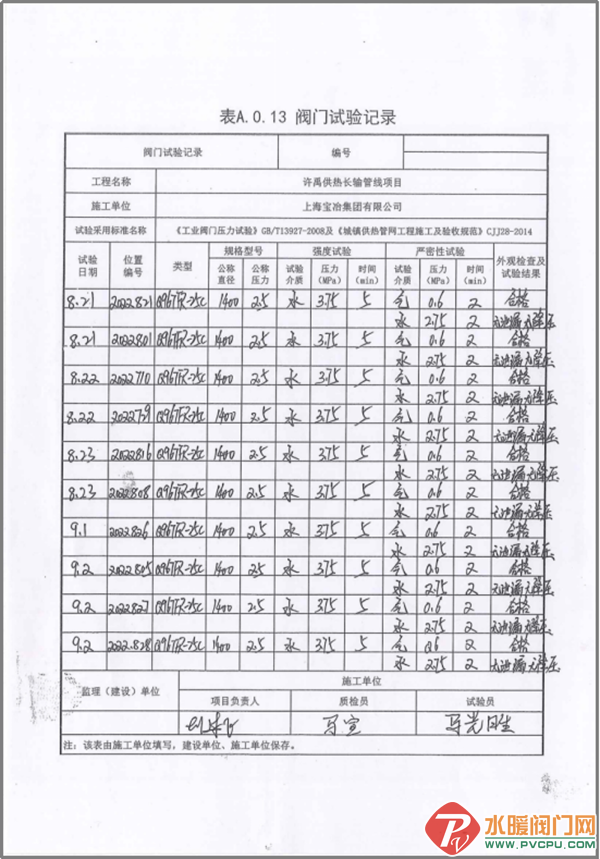 表A.0.13 阀门试验记录
阀门试验记录 编号
工程名称 许禹供热长输管线项目
施工单位 上海宝冶集团有限公司
试验采用标准名称 《工业阀门压力试验》GB/T13927-2008及《城镇供热管网工程施工及验收规范》CJJ28-2014
试验日期 位置编号 类型 规格型号 强度试验 严密性试验 外观检查及试验结果
公称直径 公称压力 试验介质 压力(MPa) 时间(min) 试验介质 压力(MPa) 时间(min)
8.21 2022.821 Q967R-25C 1400 2.5 水 3.75 5 气 0.6 2 合格
水 2.75 2 无泄漏无降压
8.21 2022801 Q967R-25C 1400 2.5 水 3.75 5 气 0.6 2 合格
水 2.75 2 无泄漏无降压
8.22 2022710 Q967R-25C 1400 2.5 水 3.75 5 气 0.6 2 合格
水 2.75 2 无泄漏无降压
8.22 2022729 Q967R-25C 1400 2.5 水 3.75 5 气 0.6 2 合格
水 2.75 2 无泄漏无降压
8.23 2022816 Q967R-25C 1400 2.5 水 3.75 5 气 0.6 2 合格
水 2.75 2 无泄漏无降压
8.23 2022.808 Q967R-25C 1400 2.5 水 3.75 5 气 0.6 2 合格
水 2.75 2 无泄漏无降压
9.1 2022826 Q967R-25C 1400 2.5 水 3.75 5 气 0.6 2 合格
水 2.75 2 无泄漏无降压
9.2 2022805 Q967R-25C 1400 2.5 水 3.75 5 气 0.6 2 合格
水 2.75 2 无泄漏无降压
9.2 2022827 Q967R-25C 1400 2.5 水 3.75 5 气 0.6 2 合格
水 2.75 2 无泄漏无降压
9.2 2022.828 Q967R-25C 1400 2.5 水 3.75 5 气 0.6 2 合格
水 2.75 2 无泄漏无降压
监理（建设）单位 施工单位
项目负责人 质检员 试验员
马宣
注：该表由施工单位填写，建设单位、施工单位保存。
水暖阀门网
WWW.PVCPU.COM